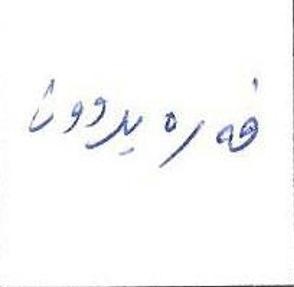 فەرەیدوون